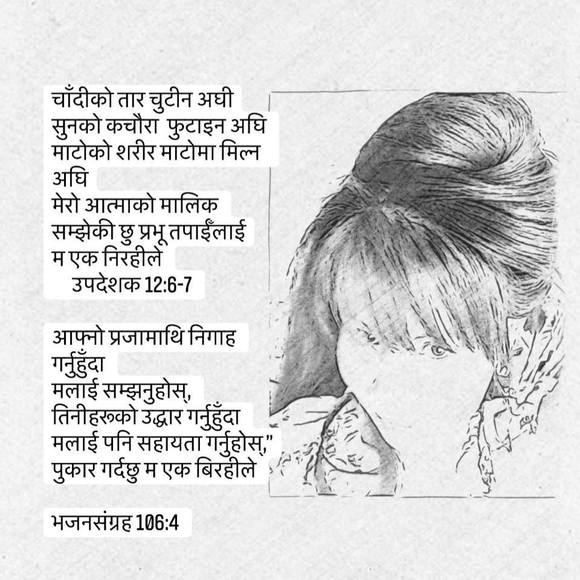 चाँदीको तार चुटीन अघी
सुनको कचौरा फुटाइन अघि
माटोको शरीर माटोमा मिल्न
अघि
मेरो आत्माको मालिक
सम्झेकी छु प्रभू तपाईँलाई
म एक निरहीले
उपदेशक 12:6-7
आफ्नो प्रजामाथि निगाह
गर्नुहुँदा
मलाई सम्झनुहोस्,
तिनीहरूको उद्धार गर्नुहुँदा
मलाई पनि सहायता गर्नुहोस्,”
पुकार गर्दछु म एक बिरहीले
भजनसंग्रह 106:4